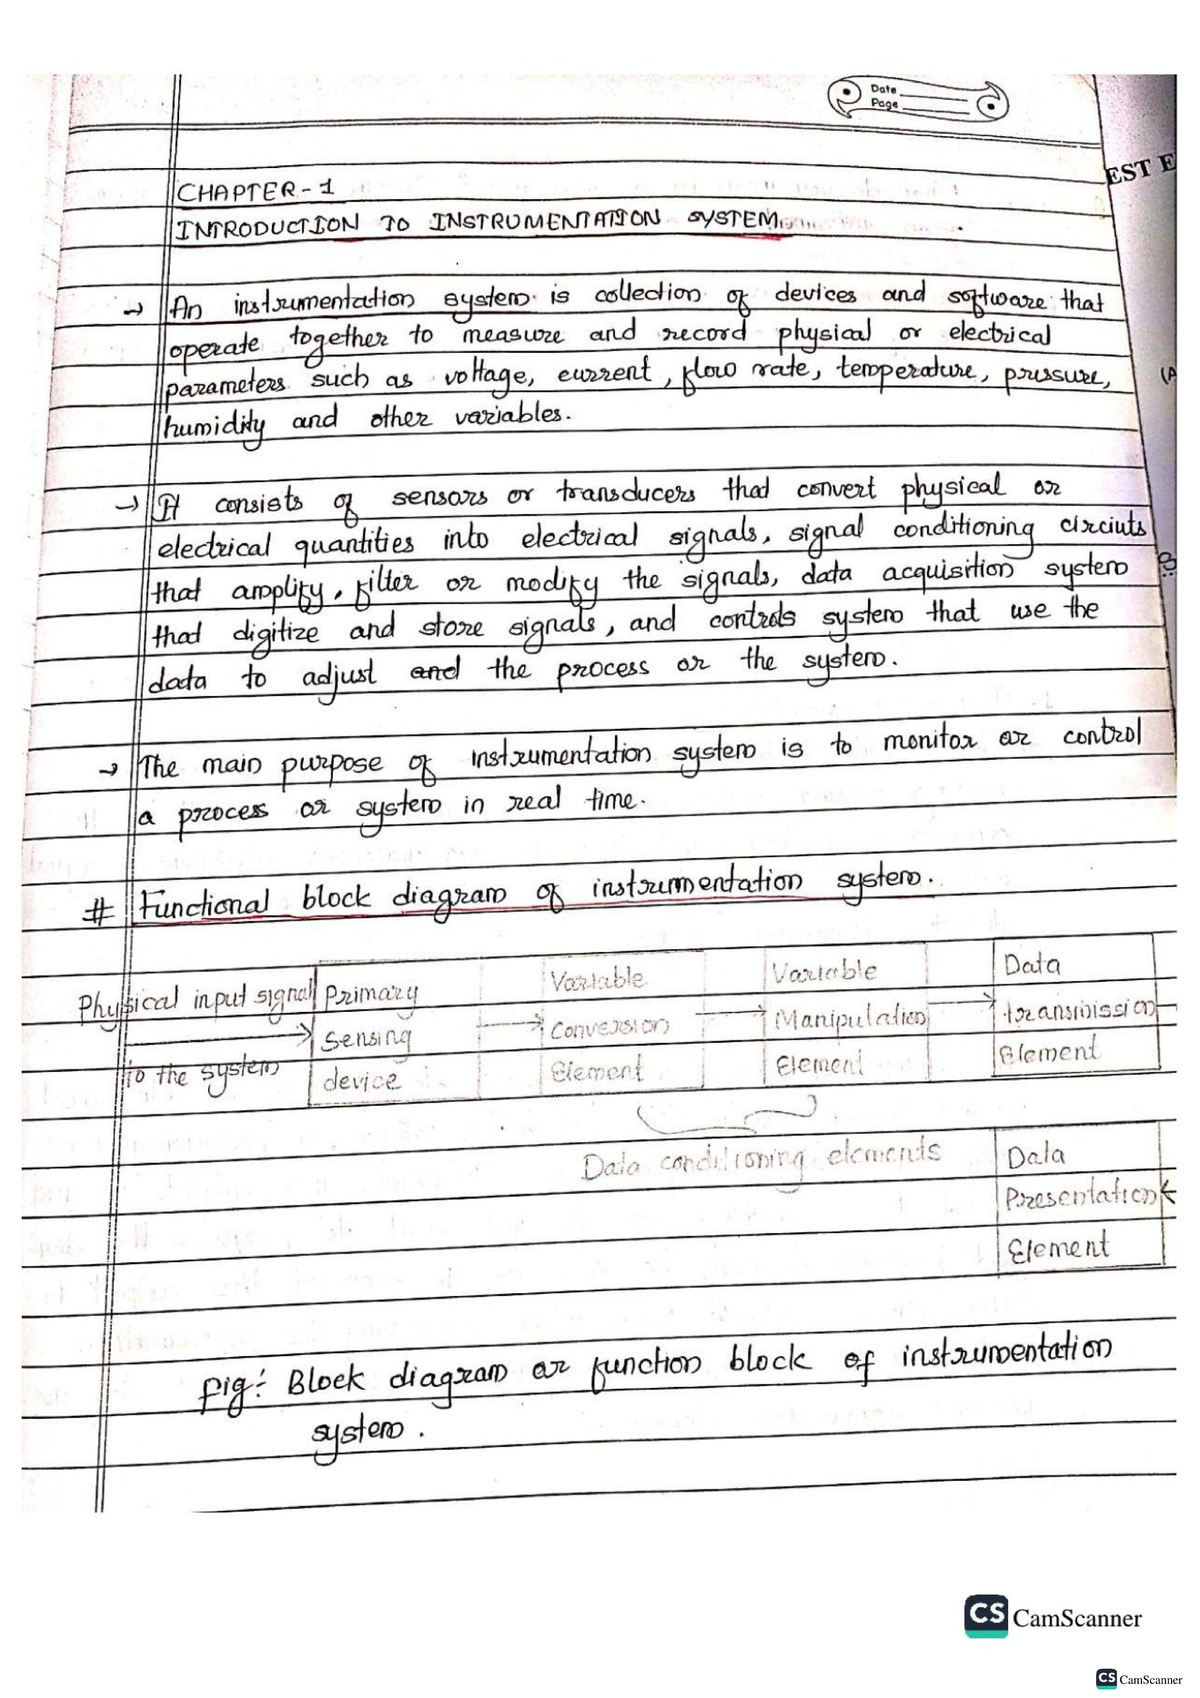 Date
Page
EST E
CHAPTER-1
INTRODUCTION TO INSTRUMENTATION SYSTEM
→ An instrumentation system is collection of devices and software that
operate together to measure and record physical or electrical
parameters such as voltage, current, flow rate, temperature, pressure,
(A
humidity and other variables.
→ It consists of sensors or transducers that convert physical or
electrical quantities into electrical signals, signal conditioning circiuts
that amplify, filter or modify the signals, data acquisition system
that digitize and store signals, and controls system that use the
data to adjust and the process or the system.
→ The main purpose of instrumentation system is to monitor or control
a process or system in real time.
# Functional block diagram of instrumentation system.
Physical input signal
to the system
Primary
Sensing
device
Variable
Conversion
Element
Variable
Manipulation
Element
Data
transmission
Element
Data conditioning elements
Data
Presentation
Element
fig: Block diagram or function block of instrumentation
system.
CS CamScanner
CS CamScanner